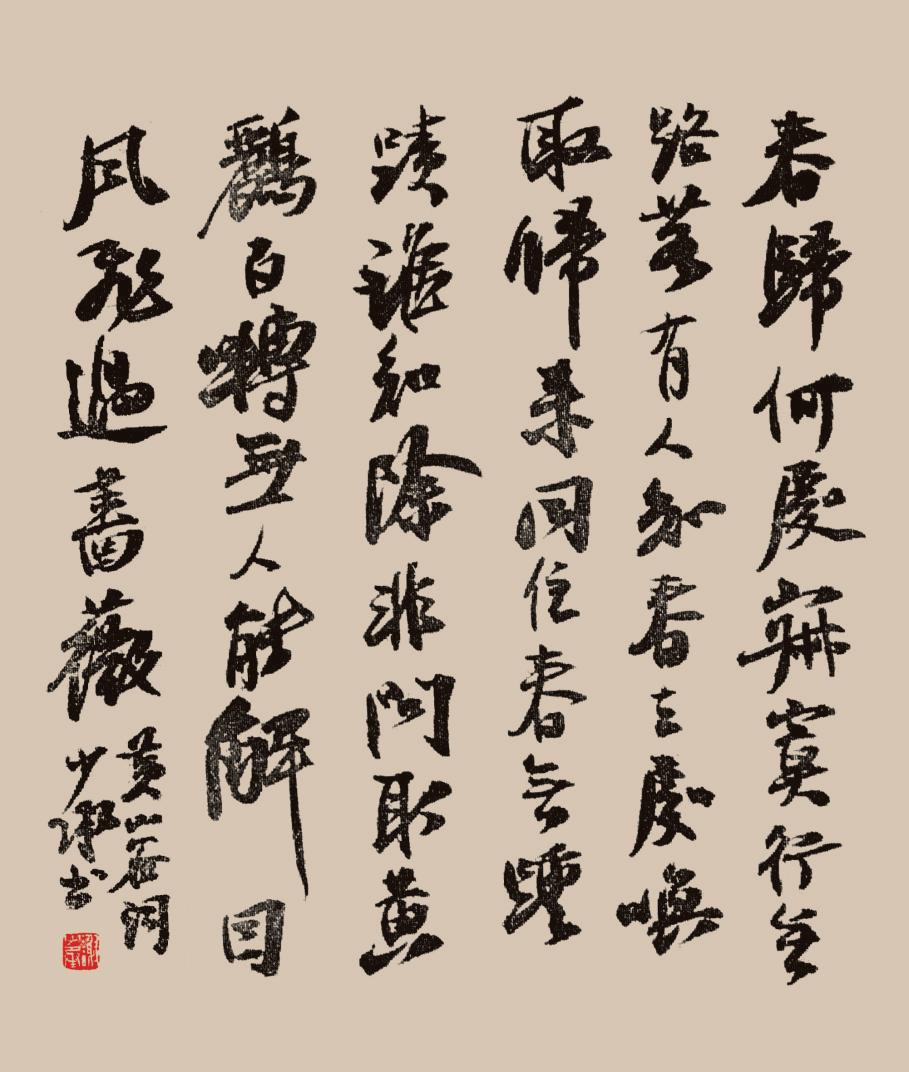 春歸何處寂寞行無
路若有人知春去處喚
取歸来同住春無蹤
蹟誰知除非問取黄
鸝百囀無人能解因
風飛過薔薇
黄山谷詞
少書